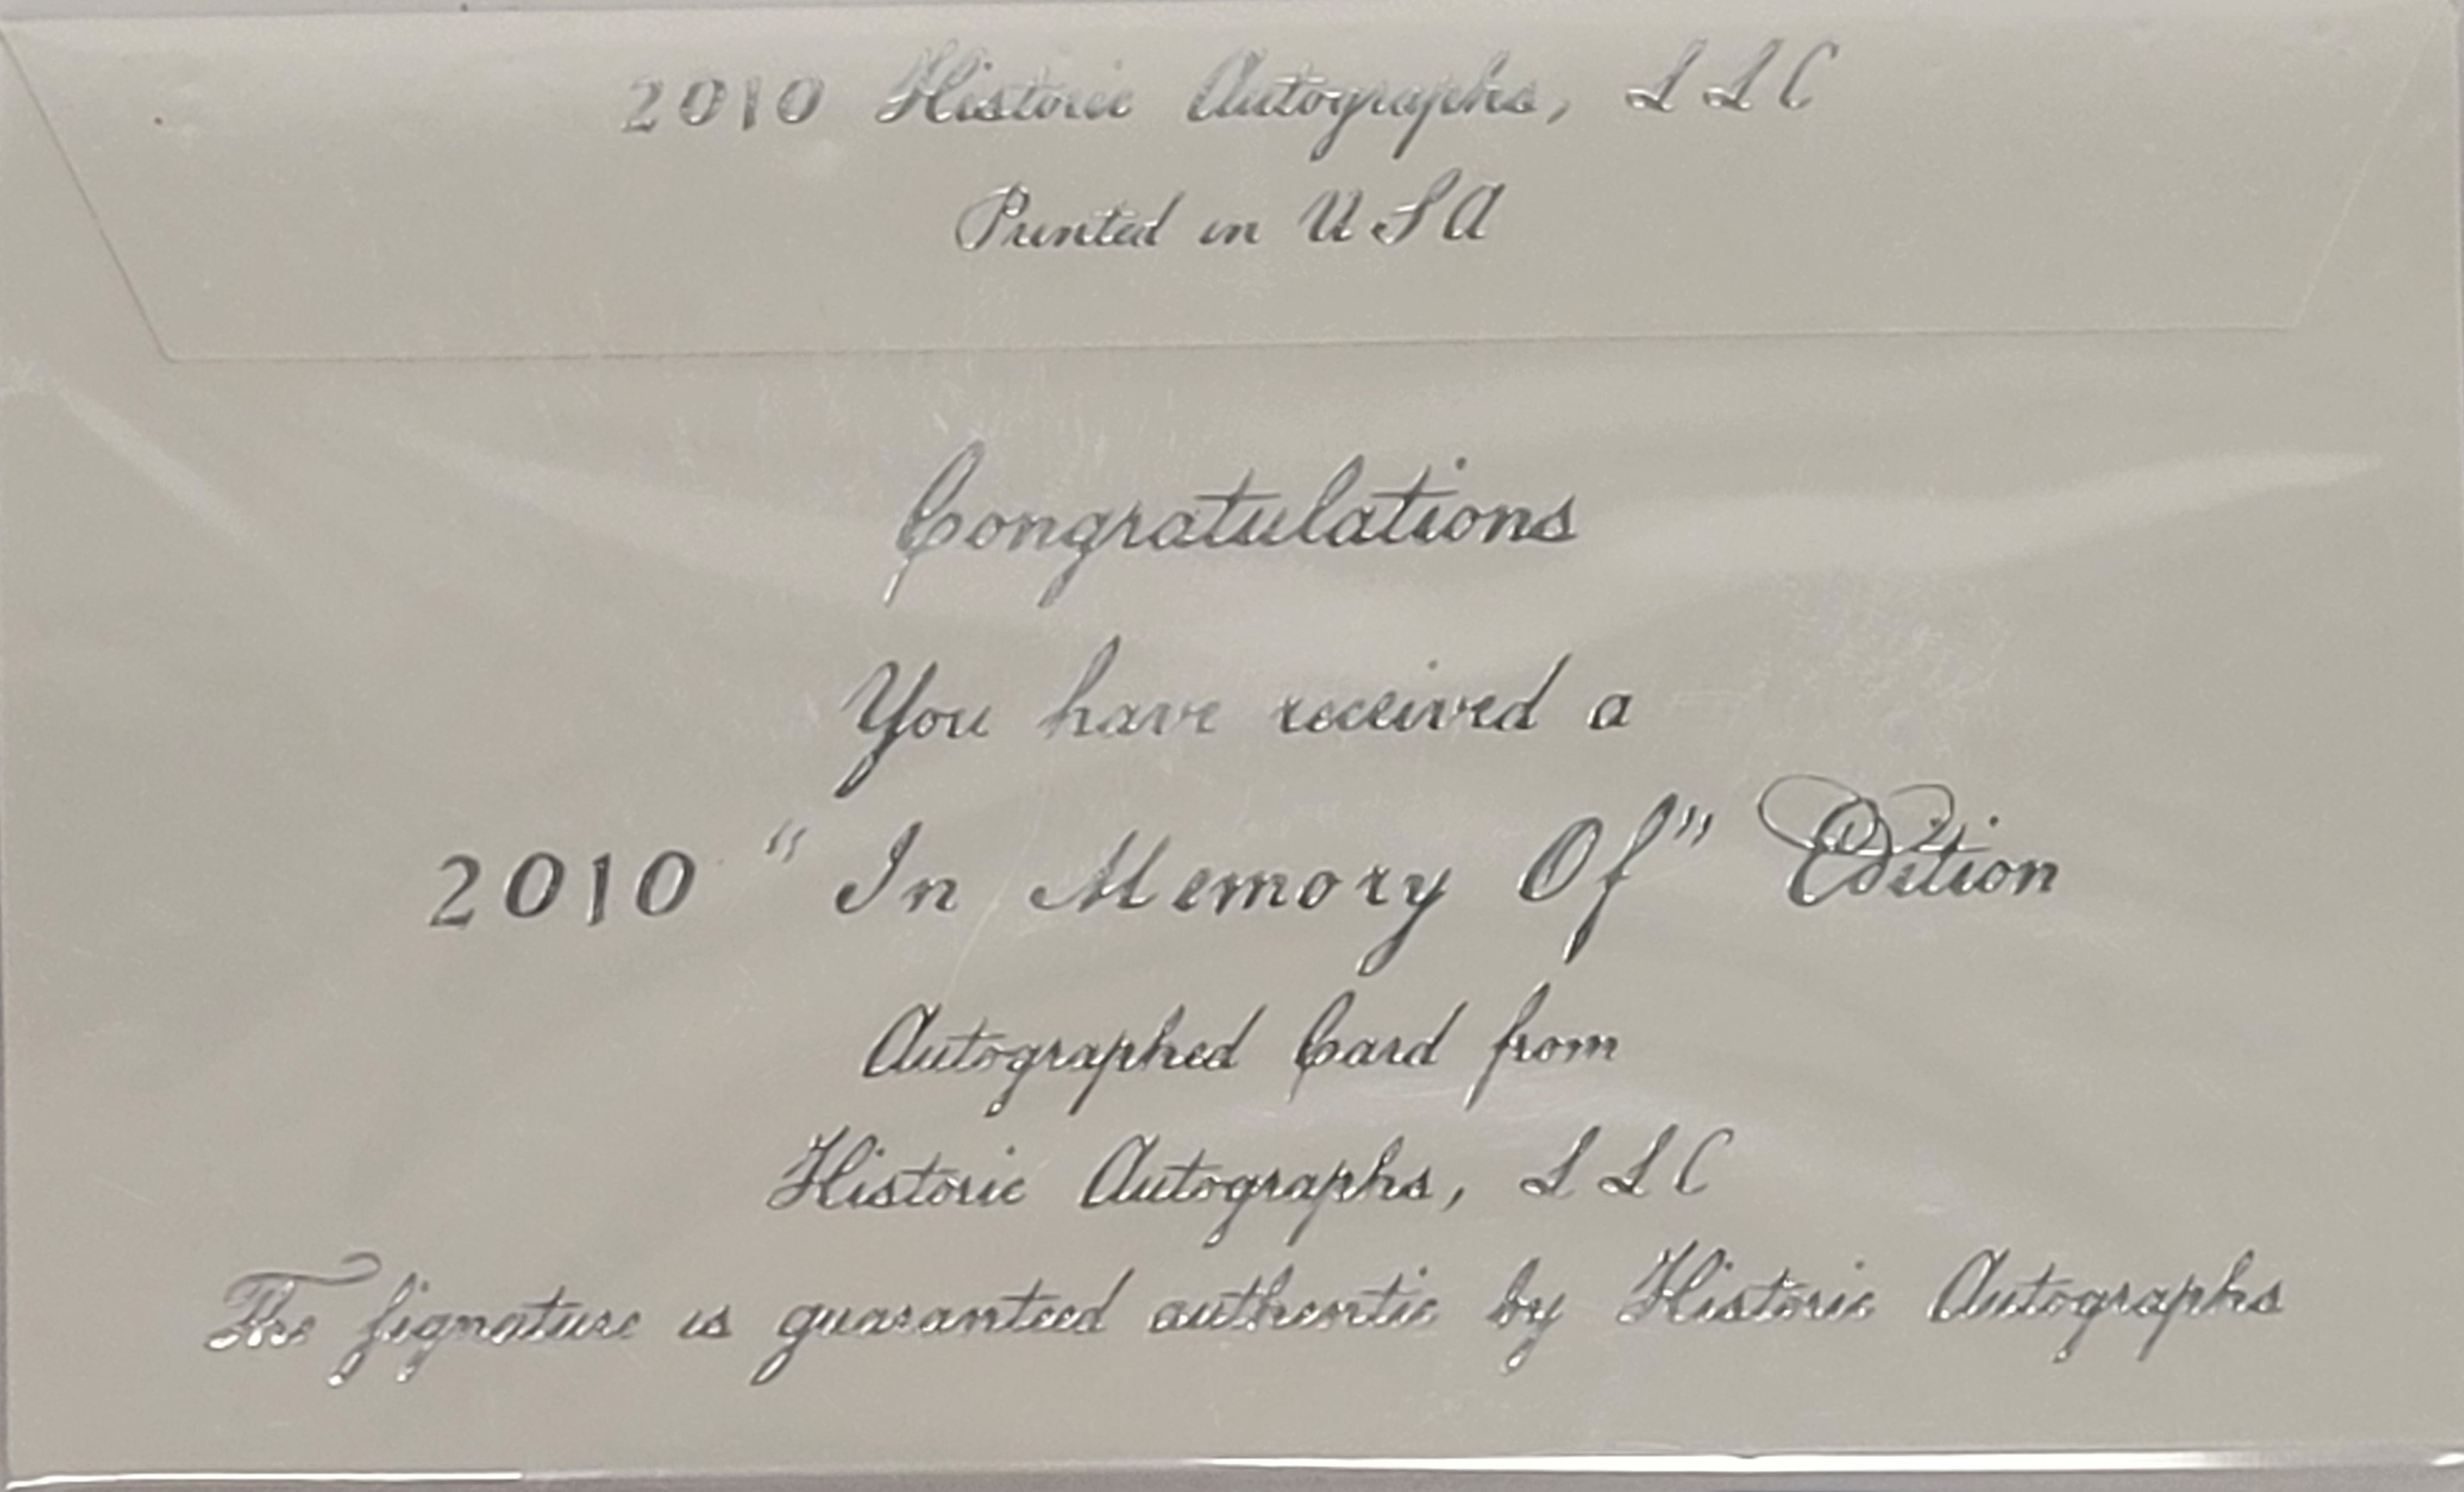 2010 Historic Autographs, LLC
Printed in USA
Congratulations
You have received a
2010 "In Memory Of" Edition
Autographed Card from
Historic Autographs, LLC
The Signature is guaranteed authentic by Historic Autographs